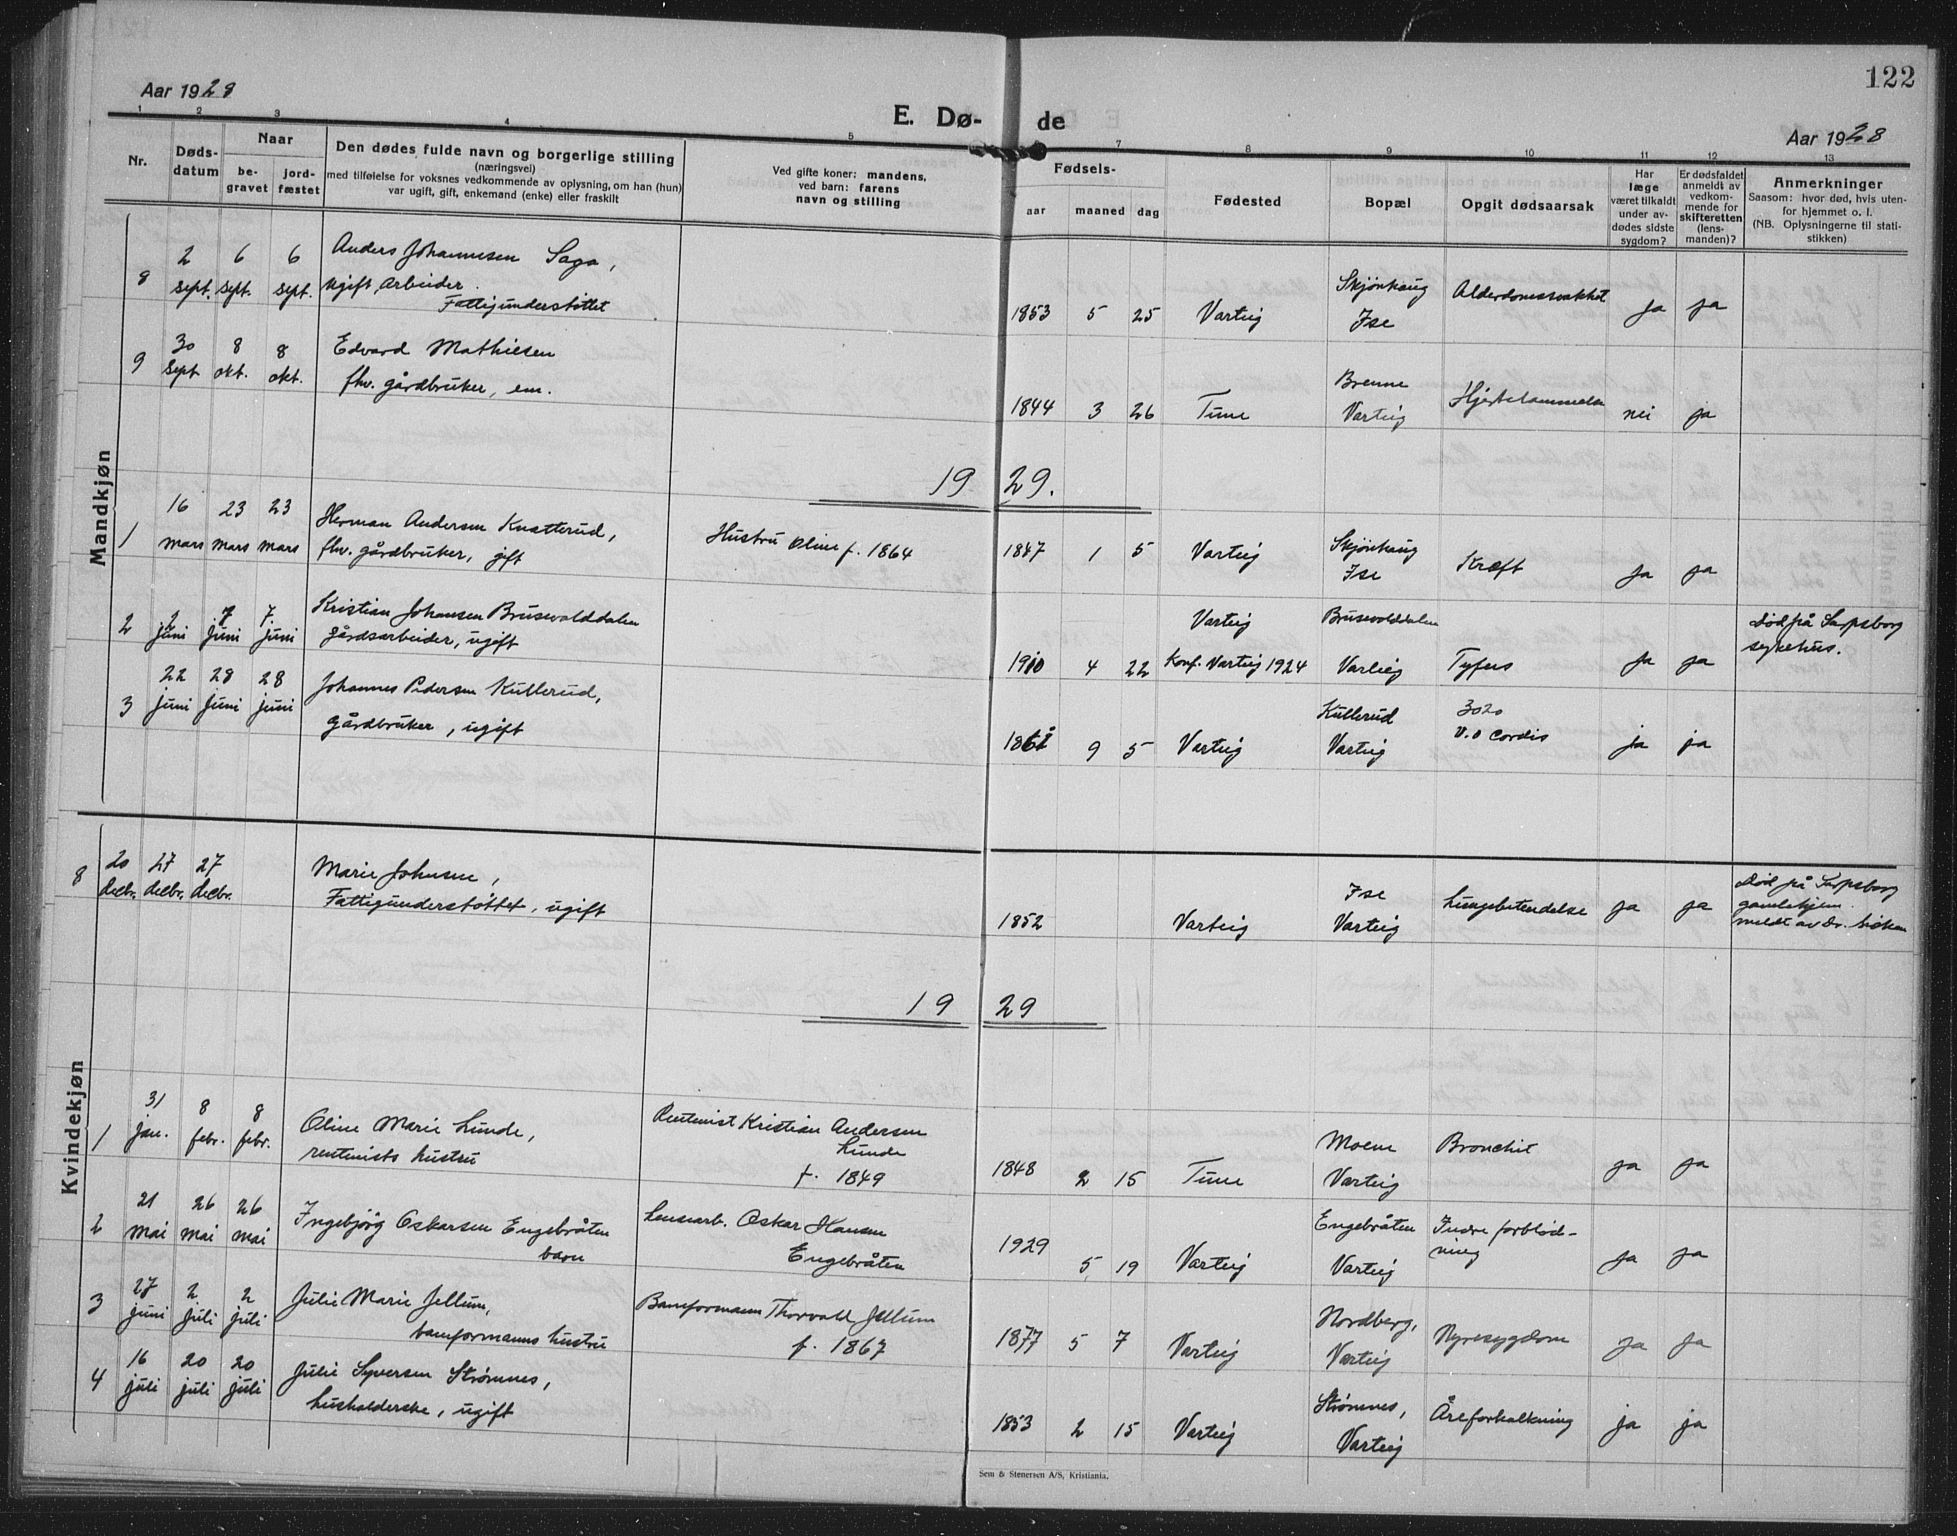 122
Aar 1928
E. Dø-de
Aar 1928
1 2 3 4 5 7 8 9 10 11 12 13
Nr.
Døds-
datum
Naar
be-
gravet
jord-
fæstet
Den dødes fulde navn og borgerlige stilling
(næringsvei)
med tilføielse for voksnes vedkommende av oplysning, om han (hun)
var ugift, gift, enkemand (enke) eller fraskilt
Ved gifte koner: mandens,
ved barn: farens
navn og stilling
Fødsels-
aar maaned dag
Fødested
Bopæl
Opgit dødsaarsak
Har
læge
været tilkaldt
under av-
dødes sidste
sygdom?
Er dødsfaldet
anmeldt av
vedkom-
mende for
skifteretten
(lens-
manden)?
Anmerkninger
Saasom: hvor død, hvis uten-
for hjemmet o. l.
(NB. Oplysningerne til stati-
stikken)
Mandkjøn
8 2 sept. 6 sept. 6 sept. Anders Johannesen Saga,
ugift, arbeider.
Fattigunderstøttet
1853 5 25 Varteig Skjønhaug
Ise
Alderdomssvakhet ja ja
9 30 sept 8 okt. 8 okt. Edvard Mathisen
fhv. gårdbruker, em.
1844 3 26 Tune Brenne
Varteig
Hjertelammelse nei ja
1929.
1 16 mars 23 mars 23 mars Herman Andersen Knatterud,
fhv. gårdbruker, gift
Hustru Oline f. 1864
1847 1 5 Varteig Skjønhaug
Ise
Kræft ja ja
2 2 juni 7 juni 7. juni Kristian Johansen Brusevolddalen
gårdsarbeider, ugift
1910 4 22 Varteig
Konf. Varteig 1924
Brusevolddalen
Varteig
Tyfus ja ja
Død på Sarpsborg
sykehus.
3 22 juni 28 juni 28 juni Johannes Pedersen Kullerud,
gårdbruker, ugift
9 5 Varteig Kullerud
Varteig
3020
V.o cordis ja ja
Kvindekjøn
8 20 decbr. 27 decbr. 27 decbr. Marie Johnsen,
Fattigunderstøttet, ugift
1852 Varteig Ise
Varteig
Lungebetendelse ja ja
Død på Sarpsborg
gamlehjem.
meldt av dr.
1929
1 31 jan. 8 febr. 8 febr. Oline Marie Lunde,
rentenists hustru
Rentenist Kristian Andersen
Lunde
f. 1849
1848 2 15 Tune Moene
Varteig
Bronchit ja ja
2 21 mai 26 mai 26 mai Ingebjørg Oskarsen Engebråten
barn
Lensearb. Oskar Hansen
Engebråten
1929 5 19 Varteig Engebråten
Varteig
Indre forblød-
ning ja ja
3 27 juni 2 juli 2 juli Julie Marie Jellum,
baneformanns hustru
Baneformann Thorvald Jellum
f. 1867
1877 5 7 Varteig Nordberg,
Varteig
Nyresygdom ja ja
4 16 juli 20 juli 20 juli Julie Syversen Strømnes,
husholderske, ugift
1853 2 15 Varteig Strømnes,
Varteig
Åreforkalkning ja ja
Sem & Stenersen A/S, Kristiania.